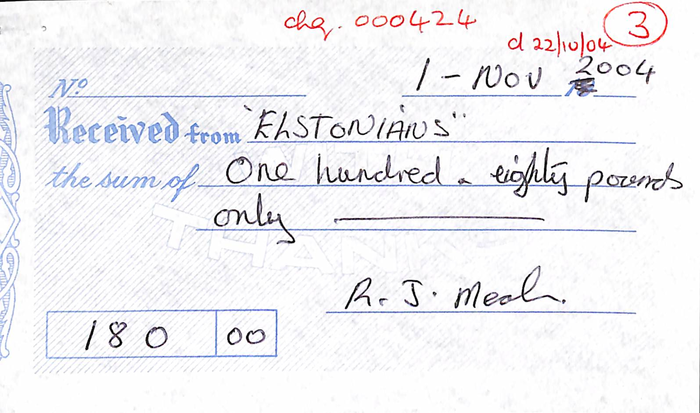 chq. 000424
d 22/10/04 3
No 1 - Nov 2004
Received from "ELSTONIANS"
the sum of One hundred & eighty pounds
only
THAN
R. J.
180 00